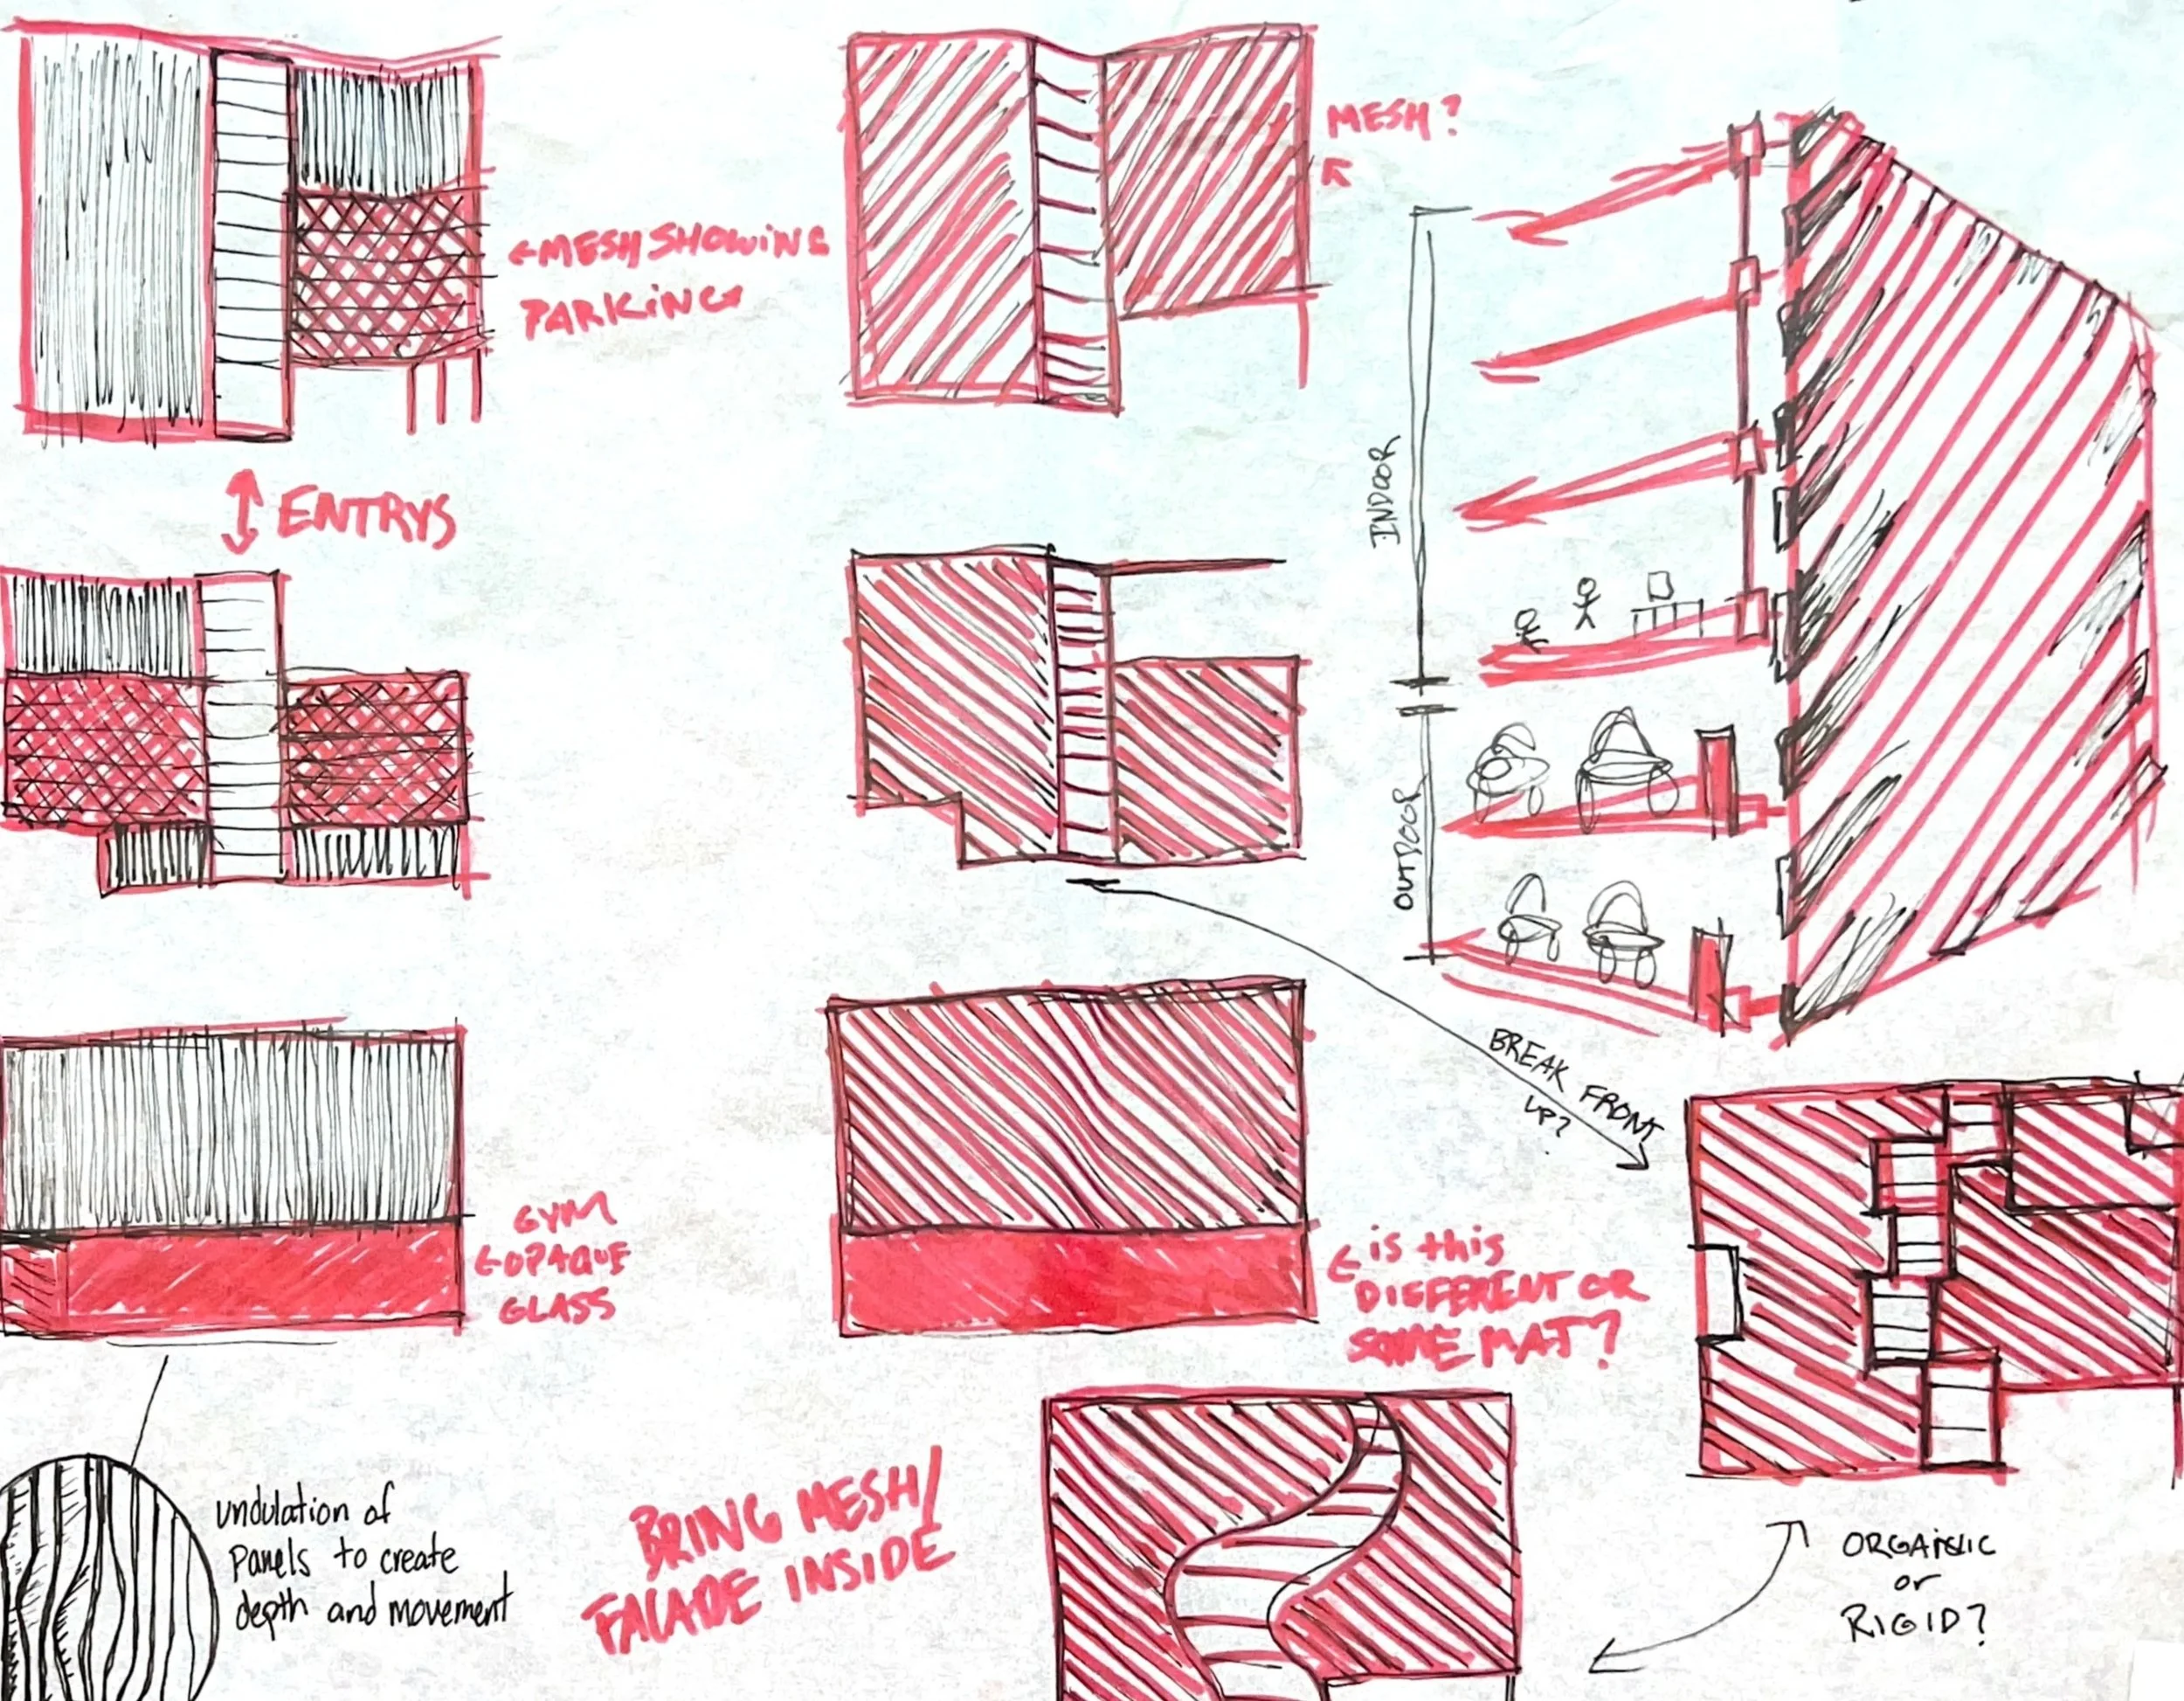 MESH?
←MESH SHOWING
PARKING
ENTRYS
INDOOR
OUTDOOR
BREAK FRONT
UP?
GYM
←OPAQUE
GLASS
← is this
DIFFERENT OR
SAME MAT?
undulation of
panels to create
depth and movement
BRING MESH/
FACADE INSIDE
ORGANIC
or
RIGID?